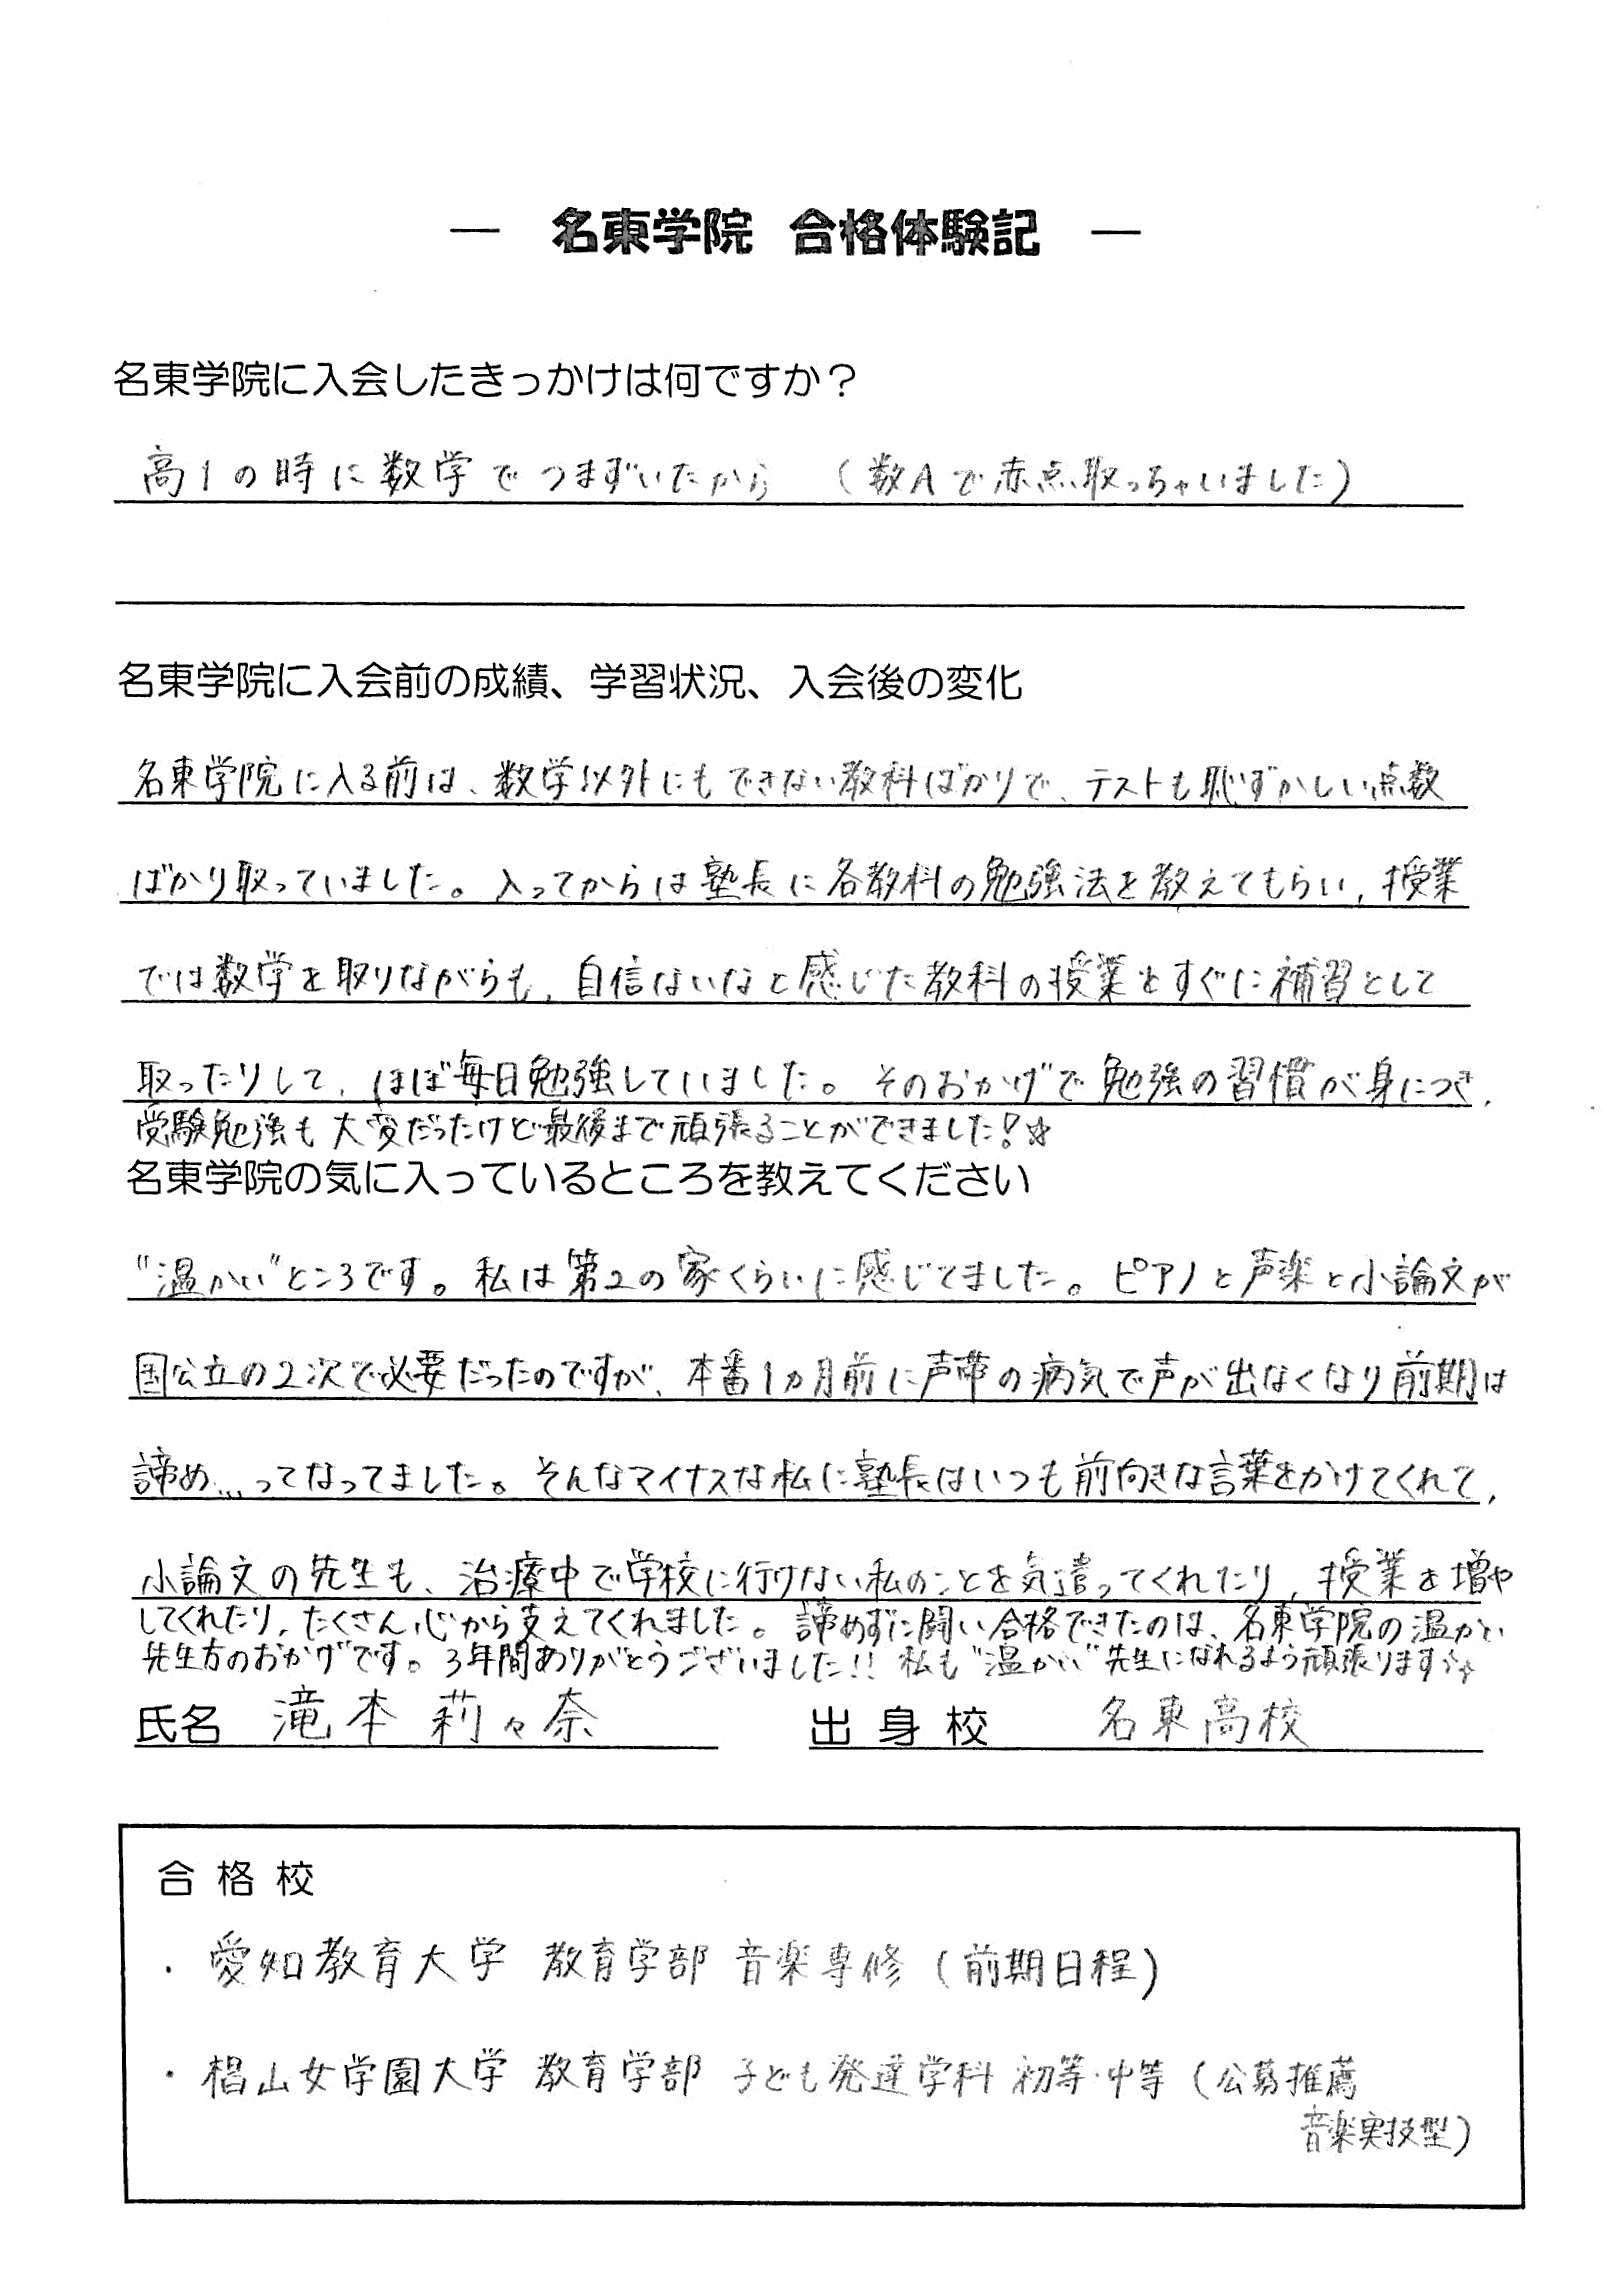 ― 名東学院 合格体験記 ―
名東学院に入会したきっかけは何ですか？
高1の時に数学でつまずいたから （数Aで赤点取っちゃいました）
名東学院に入会前の成績、学習状況、入会後の変化
名東学院に入る前は、数学以外にもできない教科ばかりで、テストも恥ずかしい点数
ばかり取っていました。入ってからは塾長に各教科の勉強法を教えてもらい、授業
では数学を取りながらも、自信ないなと感じた教科の授業をすぐに補習として
取ったりして、ほぼ毎日勉強していました。そのおかげで勉強の習慣が身につき、
受験勉強も大変だったけど最後まで頑張ることができました！☆
名東学院の気に入っているところを教えてください
“温かい”ところです。私は第2の家くらいに感じてました。ピアノと声楽と小論文が
国公立の2次で必要だったのですが、本番1カ月前に声帯の病気で声が出なくなり前期は
諦め…ってなってました。そんなマイナスな私に塾長はいつも前向きな言葉をかけてくれて、
小論文の先生も、治療中で学校に行けない私のことを気遣ってくれたり、授業を増や
してくれたり、たくさん心から支えてくれました。諦めずに闘い合格できたのは、名東学院の温かい
先生方のおかげです。3年間ありがとうございました!! 私も“温かい”先生になれるよう頑張ります☆
氏名 滝本 莉々奈 出身校 名東高校
合格校
・愛知教育大学 教育学部 音楽専修（前期日程）
・椙山女学園大学 教育学部 子ども発達学科 初等・中等（公募推薦
音楽実技型）